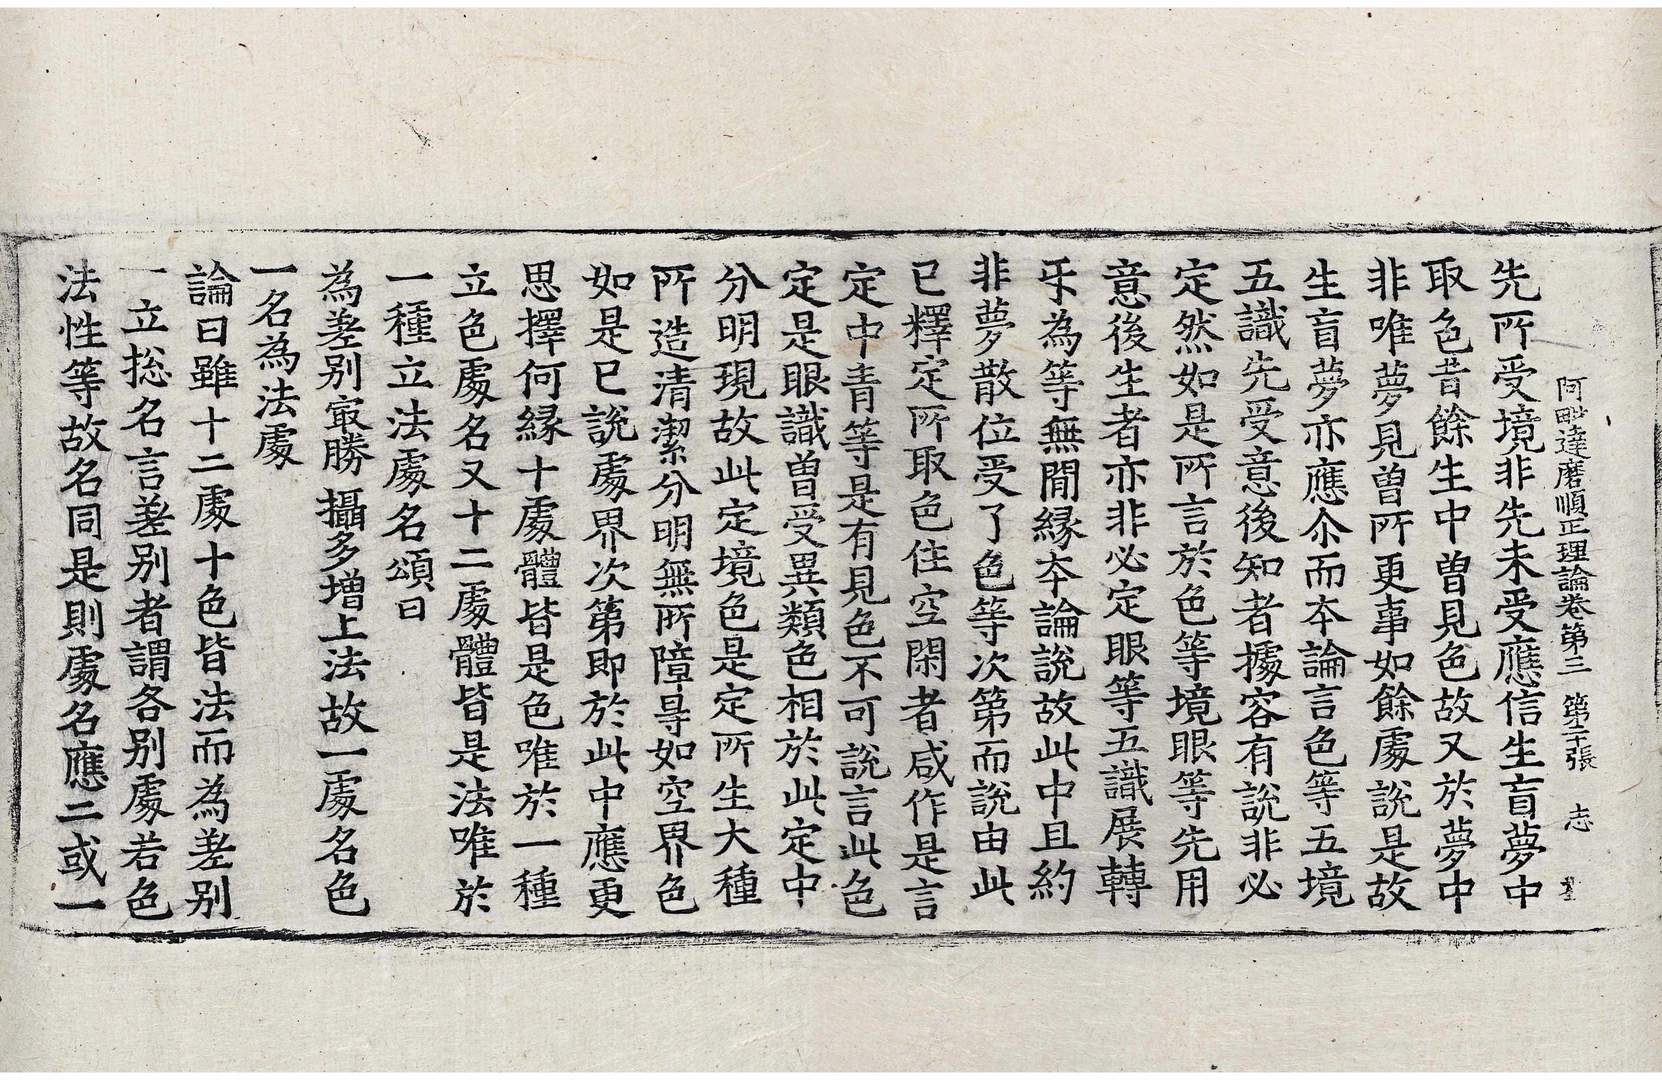 阿毗達磨順正理論卷第三　第二十張　志
先所受境非先未受應信生盲夢中
取色昔餘生中曽見色故又於夢中
非唯夢見曽所更事如餘處說是故
生盲夢亦應尒而夲論言色等五境
五識先受意後知者據容有說非必
定然如是所言於色等境眼等先用
意後生者亦非必定眼等五識展轉
乎為等無間縁夲論說故此中且約
非夢散位受了色等次第而說由此
已釋定所取色住空閑者咸作是言
定中青等是有見色不可說言此色
定是眼識曽受異類色相於此定中
分明現故此定境色是定所生大種
所造清潔分明無所障㝵如空界色
如是已說處界次第即於此中應更
思擇何縁十處體皆是色唯於一種
立色處名又十二處體皆是法唯於
一種立法處名頌曰
為差别㝡勝　攝多增上法故一處名色
一名為法處
論曰雖十二處十色皆法而為差别
一立捴名言差别者謂各别處若色
法性等故名同是則處名應二或一